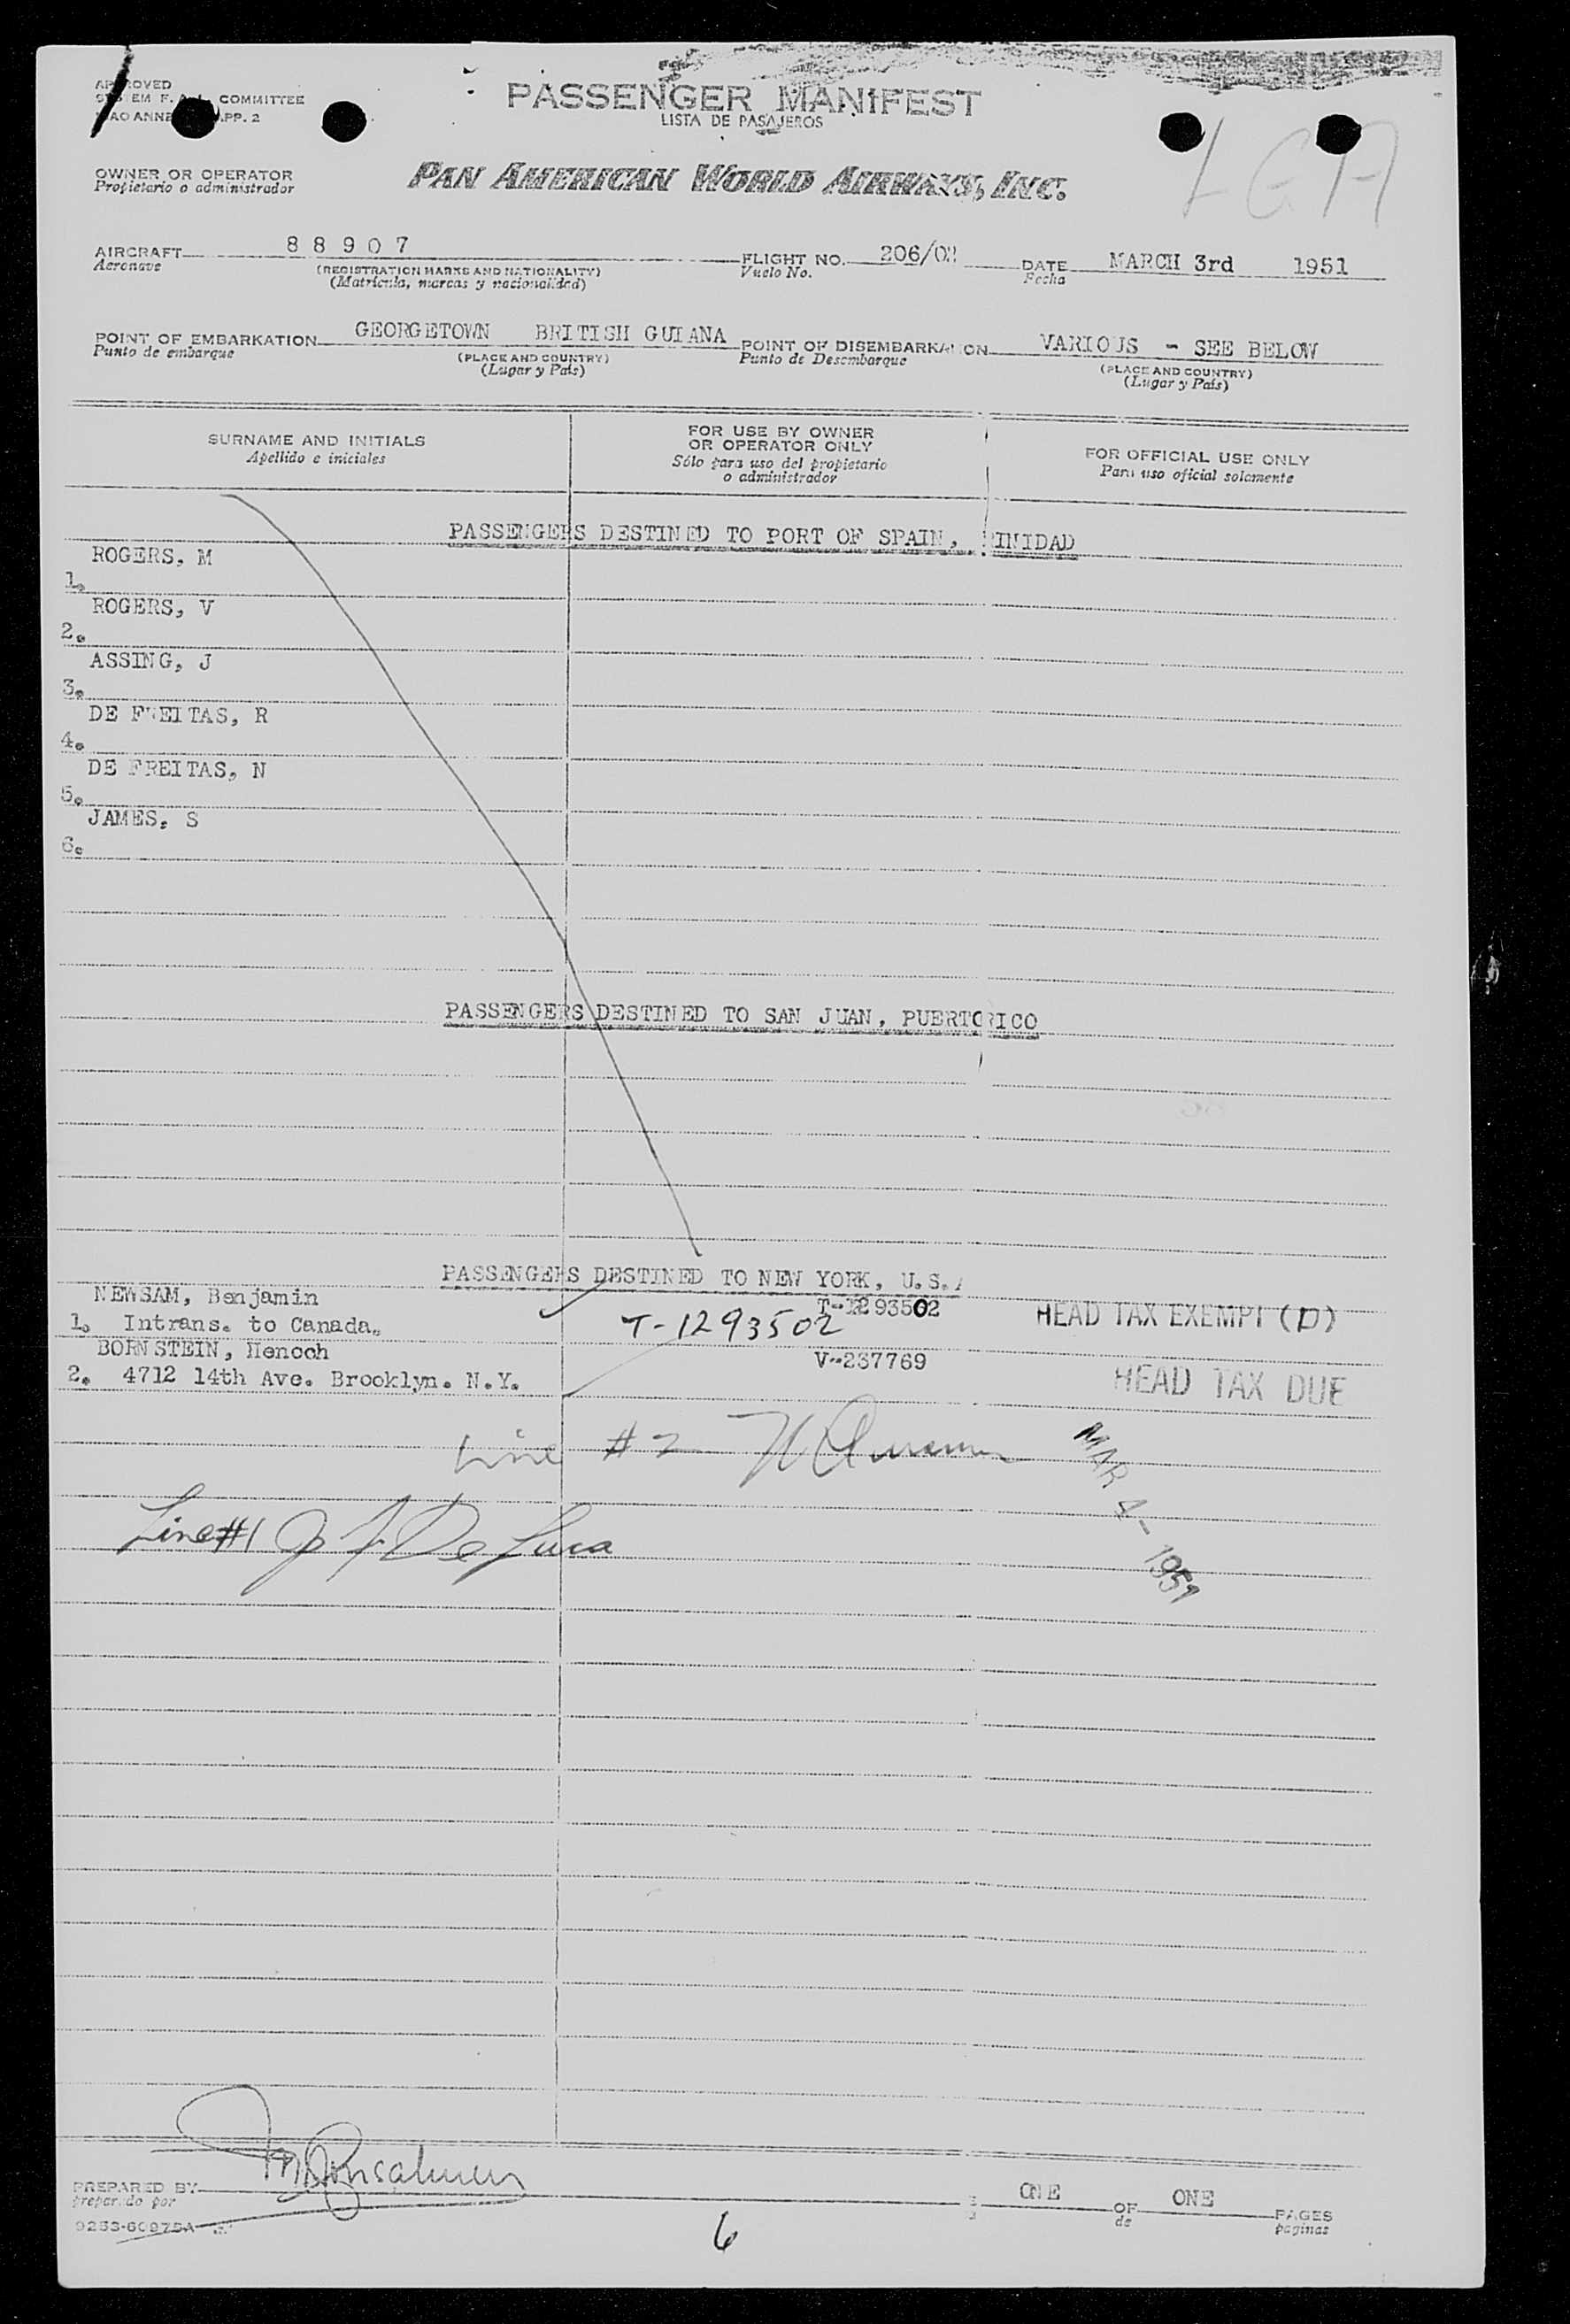 COMMITTEE
PASSENGER MANIFEST
LISTA DE PASAJEROS
LGA
OWNER OR OPERATOR
Propietario o administrador
PAN AMERICAN WORLD AIRWAYS, INC.
AIRCRAFT 88907 FLIGHT NO. 206/02 DATE MARCH 3rd 1951
Aeronave (REGISTRATION MARKS AND NATIONALITY) Vuelo No. Fecha
(Matrícula, marcas y nacionalidad)
POINT OF EMBARKATION GEORGETOWN BRITISH GUIANA POINT OF DISEMBARKATION VARIOUS - SEE BELOW
Punto de embarque (PLACE AND COUNTRY) Punto de Desembarque (PLACE AND COUNTRY)
(Lugar y País) (Lugar y País)
SURNAME AND INITIALS FOR USE BY OWNER
OR OPERATOR ONLY FOR OFFICIAL USE ONLY
Apellido e iniciales Sólo para uso del propietario Para uso oficial solamente
o administrador
PASSENGERS DESTINED TO PORT OF SPAIN, INIDAD
ROGERS, M
1.
ROGERS, V
2.
ASSING, J
3.
DE FREITAS, R
4.
DE FREITAS, N
5.
JAMES, S
6.
PASSENGERS DESTINED TO SAN JUAN, PUERTO RICO
PASSENGERS DESTINED TO NEW YORK, U.S.
NEWSAM, Benjamin T-1293502
1. Intrans. to Canada. T-1293502 HEAD TAX EXEMPT (D)
BORNSTEIN, Henoch V-237769
2. 4712 14th Ave. Brooklyn. N.Y. HEAD TAX DUE
Line #2
MAR 4 - 1951
Line #1 J. De Luca
PREPARED BY ONE OF ONE PAGES
preparado por de páginas
9253-60975A
6